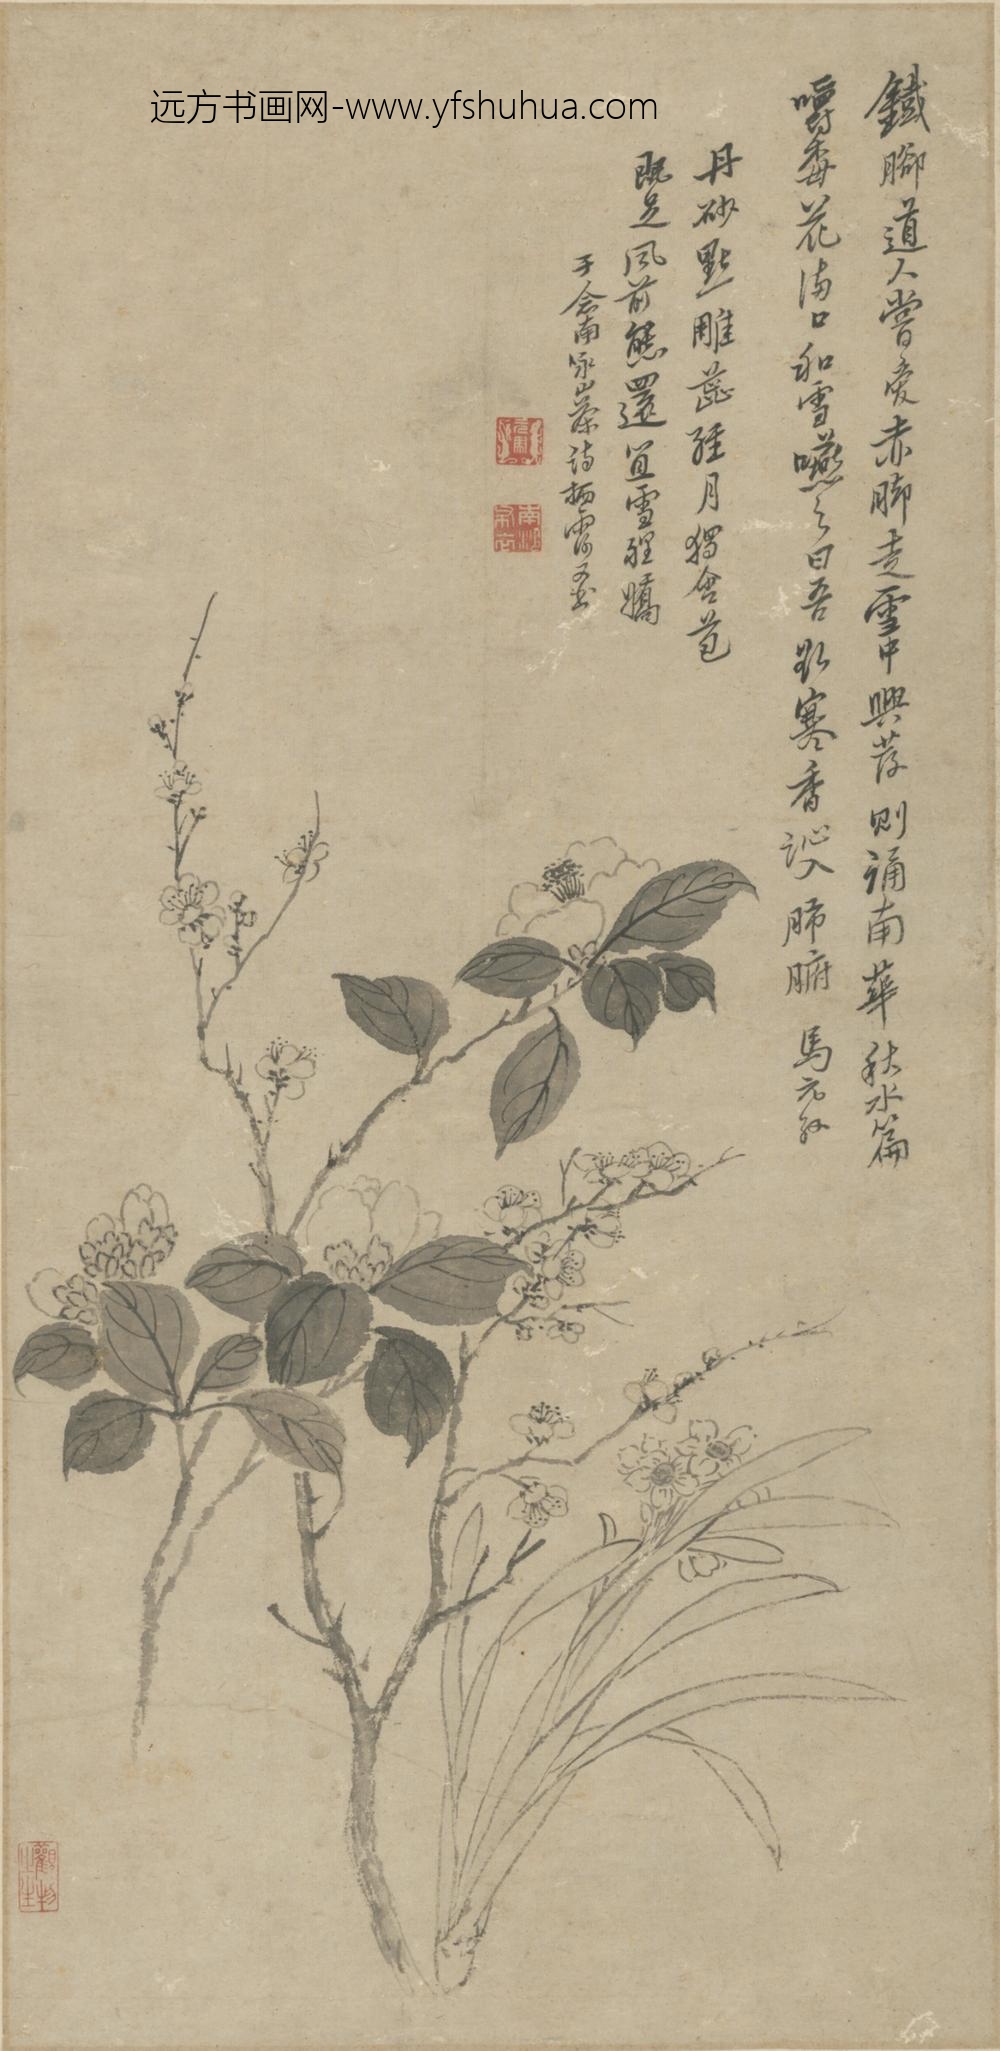 远方书画网-www.yfshuhua.com
鐵腳道人嘗愛赤腳走雪中興發則誦南華秋水篇
嚼梅花滿口和雪嚥之曰吾欲寒香沁入肺腑 馬元馭
丹砂點雕蕊經月獨含苞
既足風前態還宜雪裡嬌
于念東詠山茶詩栖霞又書